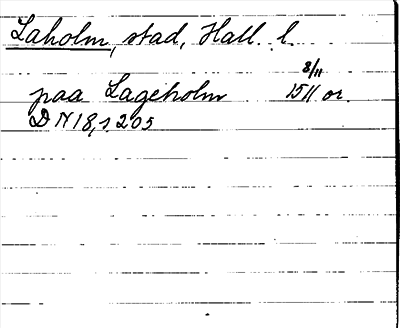 Laholm, stad, Hall. l.
8/11
paa Lageholm 1511 or.
DN 18, s. 205